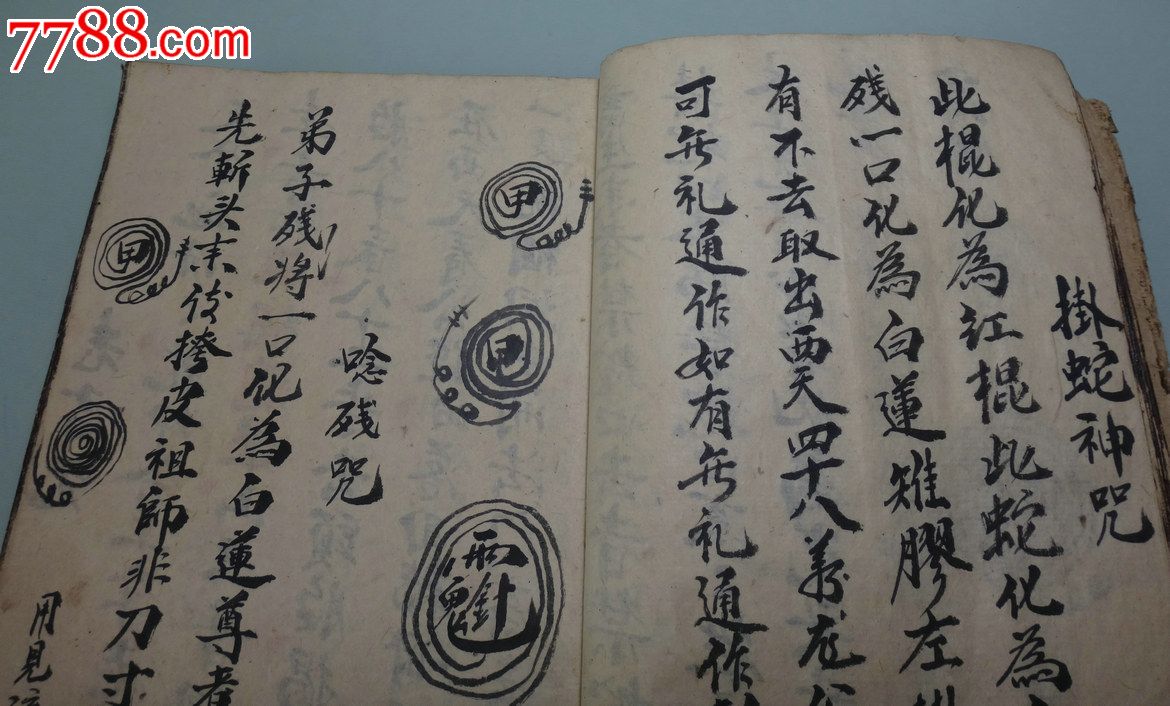 7788.com
掛蛇神咒
此棍化為紅棍此蛇化為
残一口化為白蓮雉膠左
有不去取出西天四十八
可無礼通作如有無礼通作
甲
甲
針
唸残咒
弟子残将一口化為白蓮尊者
先斬头末後撥皮祖師非刀
甲
用見